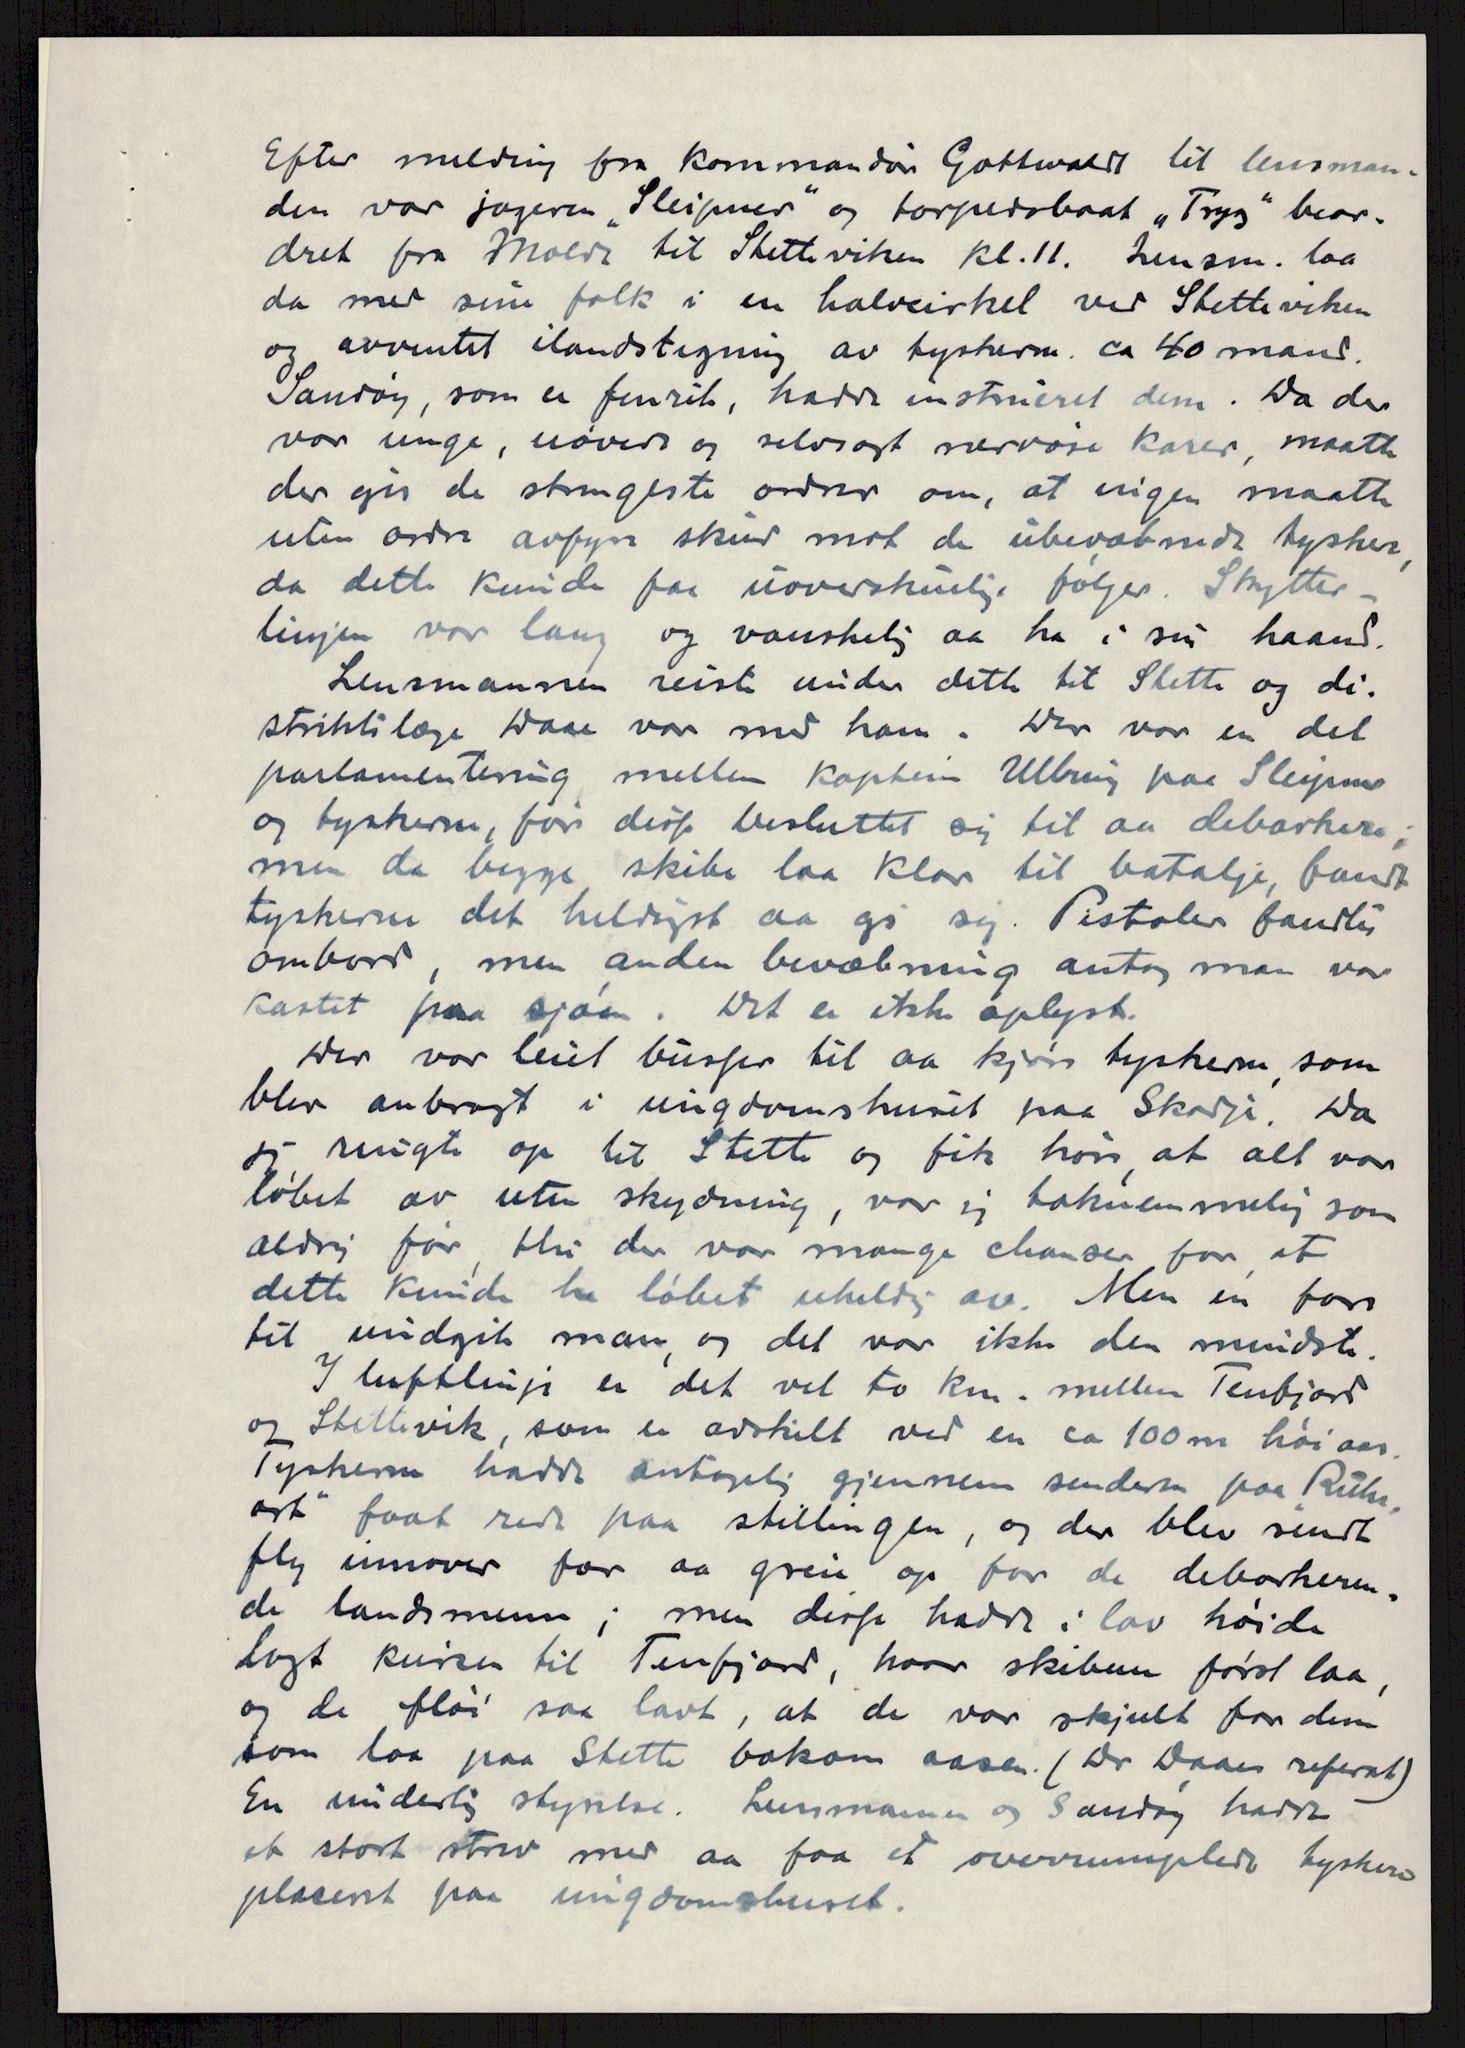 Efter melding fra kommandør Gottwaldt til lensman-
den var jageren „Sleipner“ og torpedobaat „Tryg“ beor-
dret fra Molde til Stetteviken kl. 11. Lensm. laa
da med sine folk i en halvcirkel ved Stetteviken
og avventet ilandstigning av tyskerne. ca 40 mand.
Sandøy, som er fenrik, hadde instrueret dem. Da der
var unge, uøvede og selvsagt nervøse karer, maatte
der gis de strengeste ordrer om, at ingen maatte
uten ordre avfyre skud mot de ubevæbnede tyskere,
da dette kunde faa uoverskuelige følger. Skytter-
linjen var lang og vanskelig aa ha i sin haand.
Lensmannen reiste under dette til Stette og di-
striktslæge Daae var med ham. Der var en del
parlamentering mellem kaptein Ullring paa Sleipner
og tyskerne, før disse besluttet sig til aa debarkere;
men da begge skibe laa klar til batalje, fandt
tyskerne det heldigst aa gi sig. Pistoler fandtes
ombord, men anden bevæbning antog man var
kastet paa sjøen. Det er ikke oplyst.
Der var leiet busser til aa kjøre tyskerne, som
blev anbragt i ungdomshuset paa Skodje. Da
jeg ringte op til Stette og fik høre, at alt var
løbet av uten skydning, var jeg taknemmelig som
aldrig før, thi der var mange chanser for at
dette kunde ha løbet uheldig av. Men en fare
til undgik man, og det var ikke den mindste.
I luftlinje er det vel to km. mellem Tenfjord
og Stettevik, som er adskilt ved en ca 100 m høi aas.
Tyskerne hadde antagelig gjennem senderen paa „Ruhr-
ort“ faat rede paa stillingen, og der blev sendt
fly innover for aa greie op for de debarkeren-
de landsmenn; men disse hadde i lav høide
lagt kursen til Tenfjord, hvor skibene først laa,
og de fløi saa lavt, at de var skjult for dem
som laa paa Stette bakom aasen. (Dr Daaes referat)
En underlig styrelse. Lensmannen og Sandøy hadde
et stort strev med aa faa et overrumplede tyskere
placeret paa ungdomshuset.